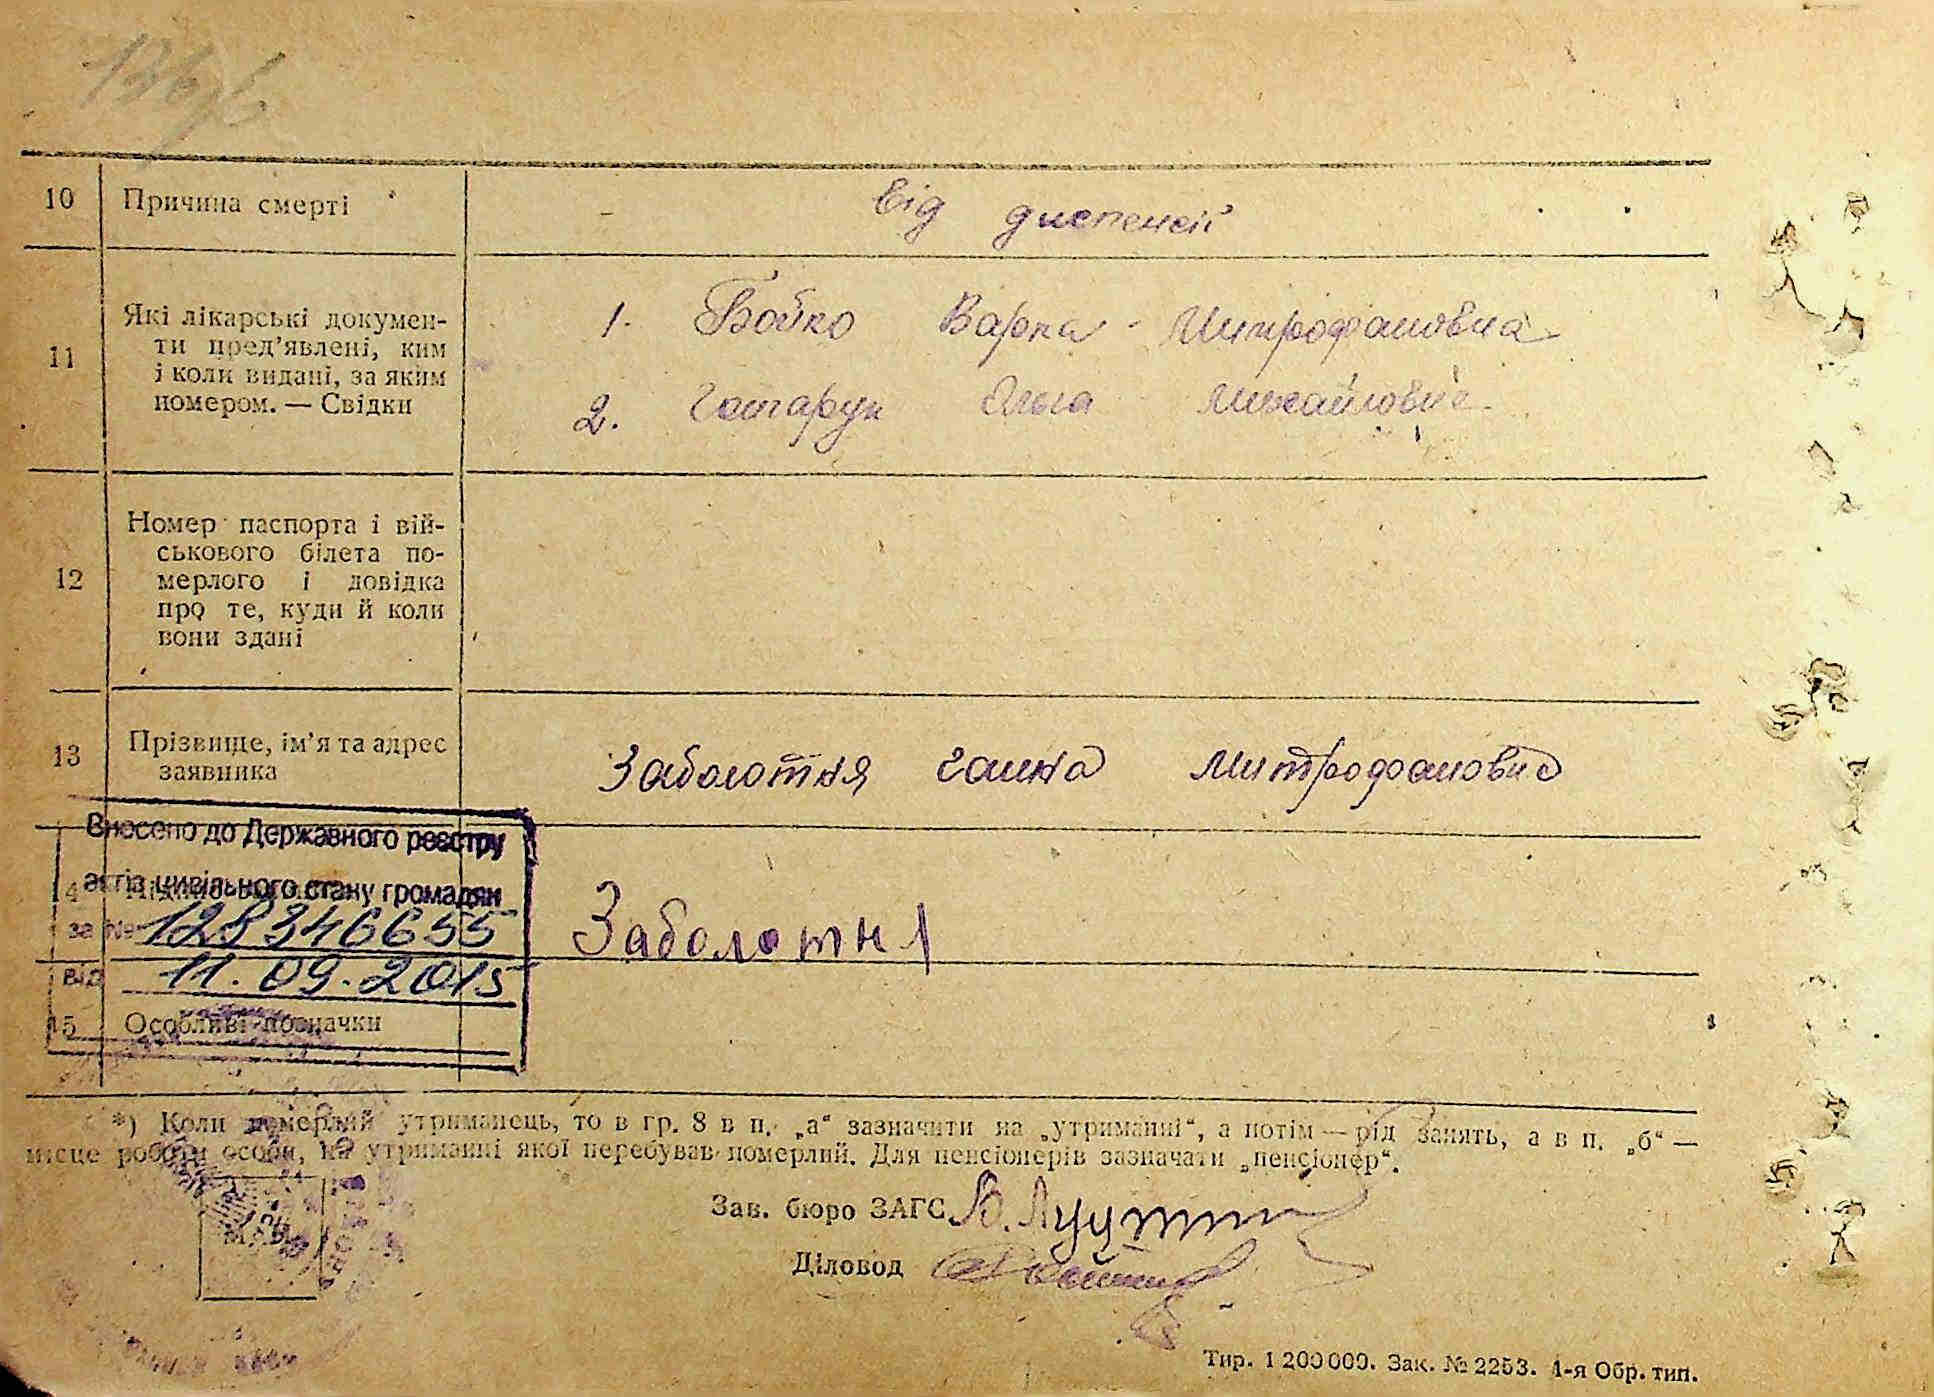 10 Причина смерті Від диспенсії
11 Які лікарські докумен-
ти пред'явлені, ким
і коли видані, за яким
номером. — Свідки
1. Бойко Варка Митрофановна
2. Гатарук Ольга Михайловна
12 Номер паспорта і вій-
ськового білета по-
мерлого і довідка
про те, куди й коли
вони здані
13 Прізвище, ім'я та адрес
заявника
Заболотня Ганна Митрофановна
Внесено до Державного реєстру
актів цивільного стану громадян
за № 128346655
від 11.09.2015
Заболотня
15 Особливі позначки
*) Коли померлий утриманець, то в гр. 8 в п. „а“ зазначити на „утриманні“, а потім — рід занять, а в п. „б“ —
місце роботи особи, на утриманні якої перебував померлий. Для пенсіонерів зазначати „пенсіонер“.
Зав. бюро ЗАГС
Діловод
Тир. 1 200 000. Зак. № 2253. 1-я Обр. тип.